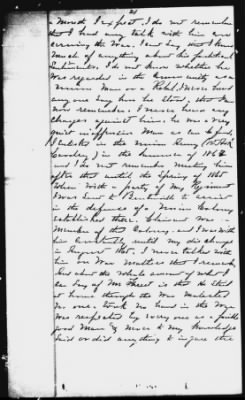 21
a Mason I expect. I do not remember
that I had any talk with him
concerning the War. I can't say that I knew
much of anything about his political
Sentiments. I do not know whether he
was regarded in the community as a
Union Man or a Rebel. I never heard
any one Say how he Stood, that I
now remember. I never heard any
charges against him. he was a very
quiet inoffensive Man as can be found,
I enlisted in the Union Army
Cavalry) in the Summer of 186
and I do not remember meeting him
after that until the Spring of 64
When with a party of my Regiment
I was sent to to assist
in the defence of a Union Colony
established there. Claimant was a
Member of that Colony. and I was with
him until my discharge
in August 64. I never talked with
him on War Matters that I remember
And about the whole amount of what I
can Say of Mr is that he Staid
at home through the War Molested
no one. took no hand in the War
Was respected by every one as a
good Man & never to my Knowledge
Said or did anything to injure the